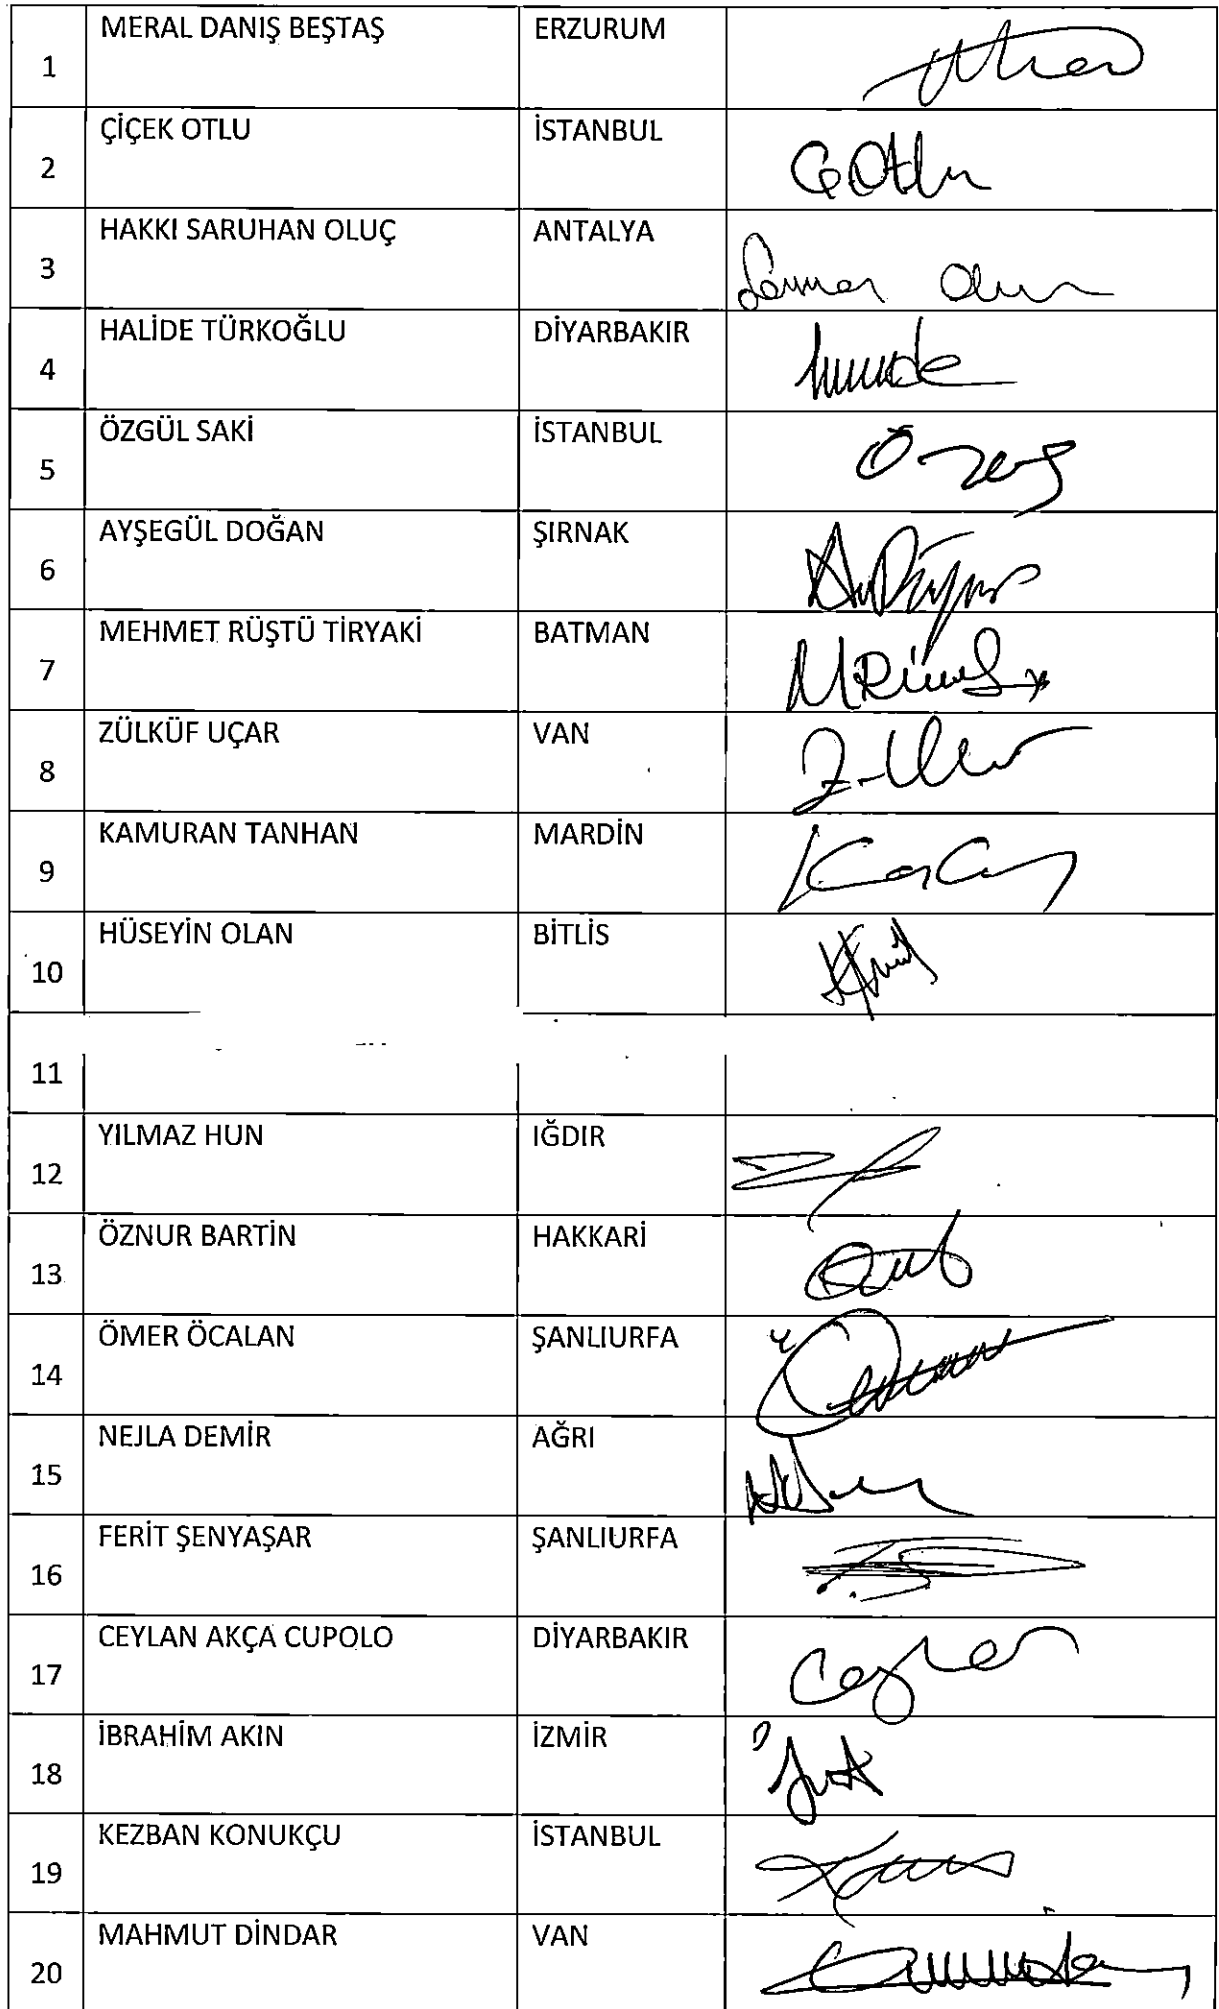 1 MERAL DANIŞ BEŞTAŞ ERZURUM
2 ÇİÇEK OTLU İSTANBUL
3 HAKKI SARUHAN OLUÇ ANTALYA
4 HALİDE TÜRKOĞLU DİYARBAKIR
5 ÖZGÜL SAKİ İSTANBUL
6 AYŞEGÜL DOĞAN ŞIRNAK
7 MEHMET RÜŞTÜ TİRYAKİ BATMAN
8 ZÜLKÜF UÇAR VAN
9 KAMURAN TANHAN MARDİN
10 HÜSEYİN OLAN BİTLİS
11
12 YILMAZ HUN IĞDIR
13 ÖZNUR BARTİN HAKKARİ
14 ÖMER ÖCALAN ŞANLIURFA
15 NEJLA DEMİR AĞRI
16 FERİT ŞENYAŞAR ŞANLIURFA
17 CEYLAN AKÇA CUPOLO DİYARBAKIR
18 İBRAHİM AKIN İZMİR
19 KEZBAN KONUKÇU İSTANBUL
20 MAHMUT DİNDAR VAN